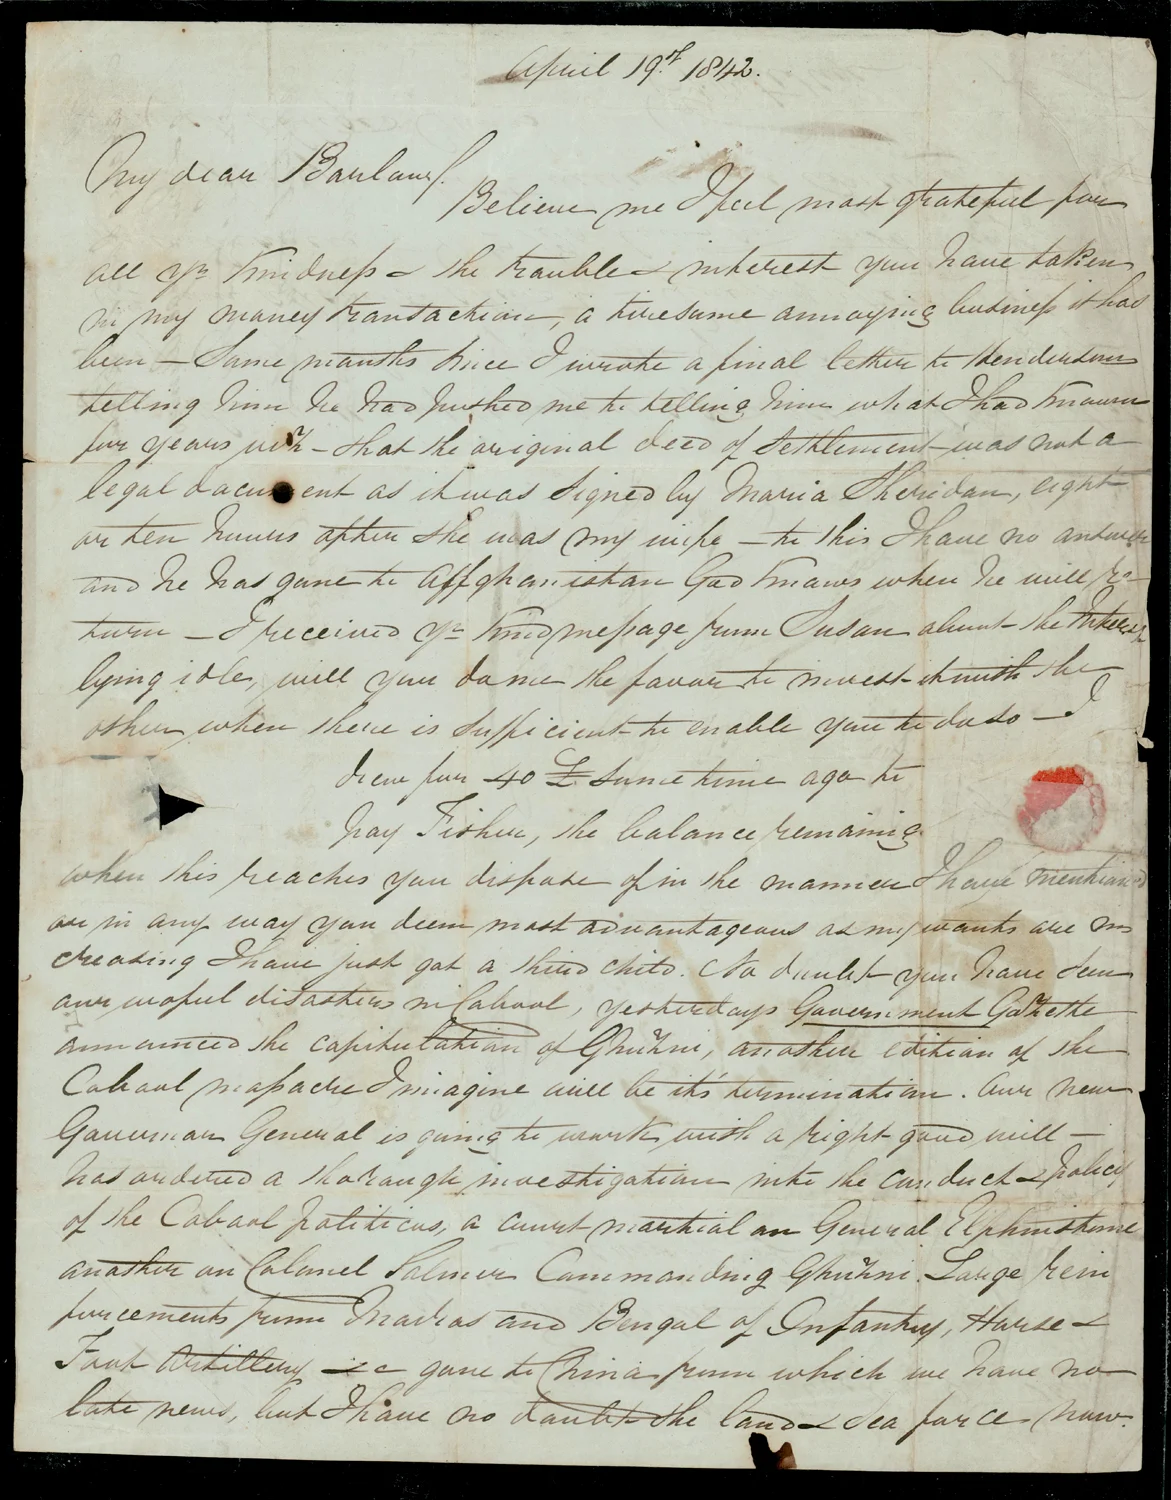 April 19th 1842.
My dear Barlow.
Believe me I feel most grateful for
all yr kindness & the trouble & interest you have taken
in my money transaction, a tiresome annoying business it has
been — Some months since I wrote a final letter to Henderson
telling him he had pushed me to telling him what I had known
for years viz - that the original deed of Settlement was not a
legal document as it was signed by Maria Sheridan, eight
or ten hours after she was my wife — to this I have no answer
and he has gone to Affghanistan God knows when he will re-
turn — I received yr kind message from Susan about the Interest
lying idle, will you do me the favor to invest it with the
other when there is sufficient to enable you to do so — I
drew for 40 £ some time ago to
pay Fisher, the balance remaining
when this reaches you dispose of in the manner I have mentioned
or in any way you deem most advantageous as my wants are in
creasing I have just got a third child. No doubt you have seen
our woful disasters in Cabool, yesterdays Government Gazette
announced the capitulation of Ghuzni, another edition of the
Cabool massacre I imagine will be it's termination. Our new
Governor General is going to work with a right good will —
has ordered a thorough investigation into the conduct & policy
of the Cabool politicos, a court martial on General Elphinstone
another on Colonel Palmer Commanding Ghuzni. Large rein
forcements from Madras and Bengal of Infantry, Horse &
Foot Artillery &c gone to China from which we have no
late news, but I have no doubt the land & sea force now.